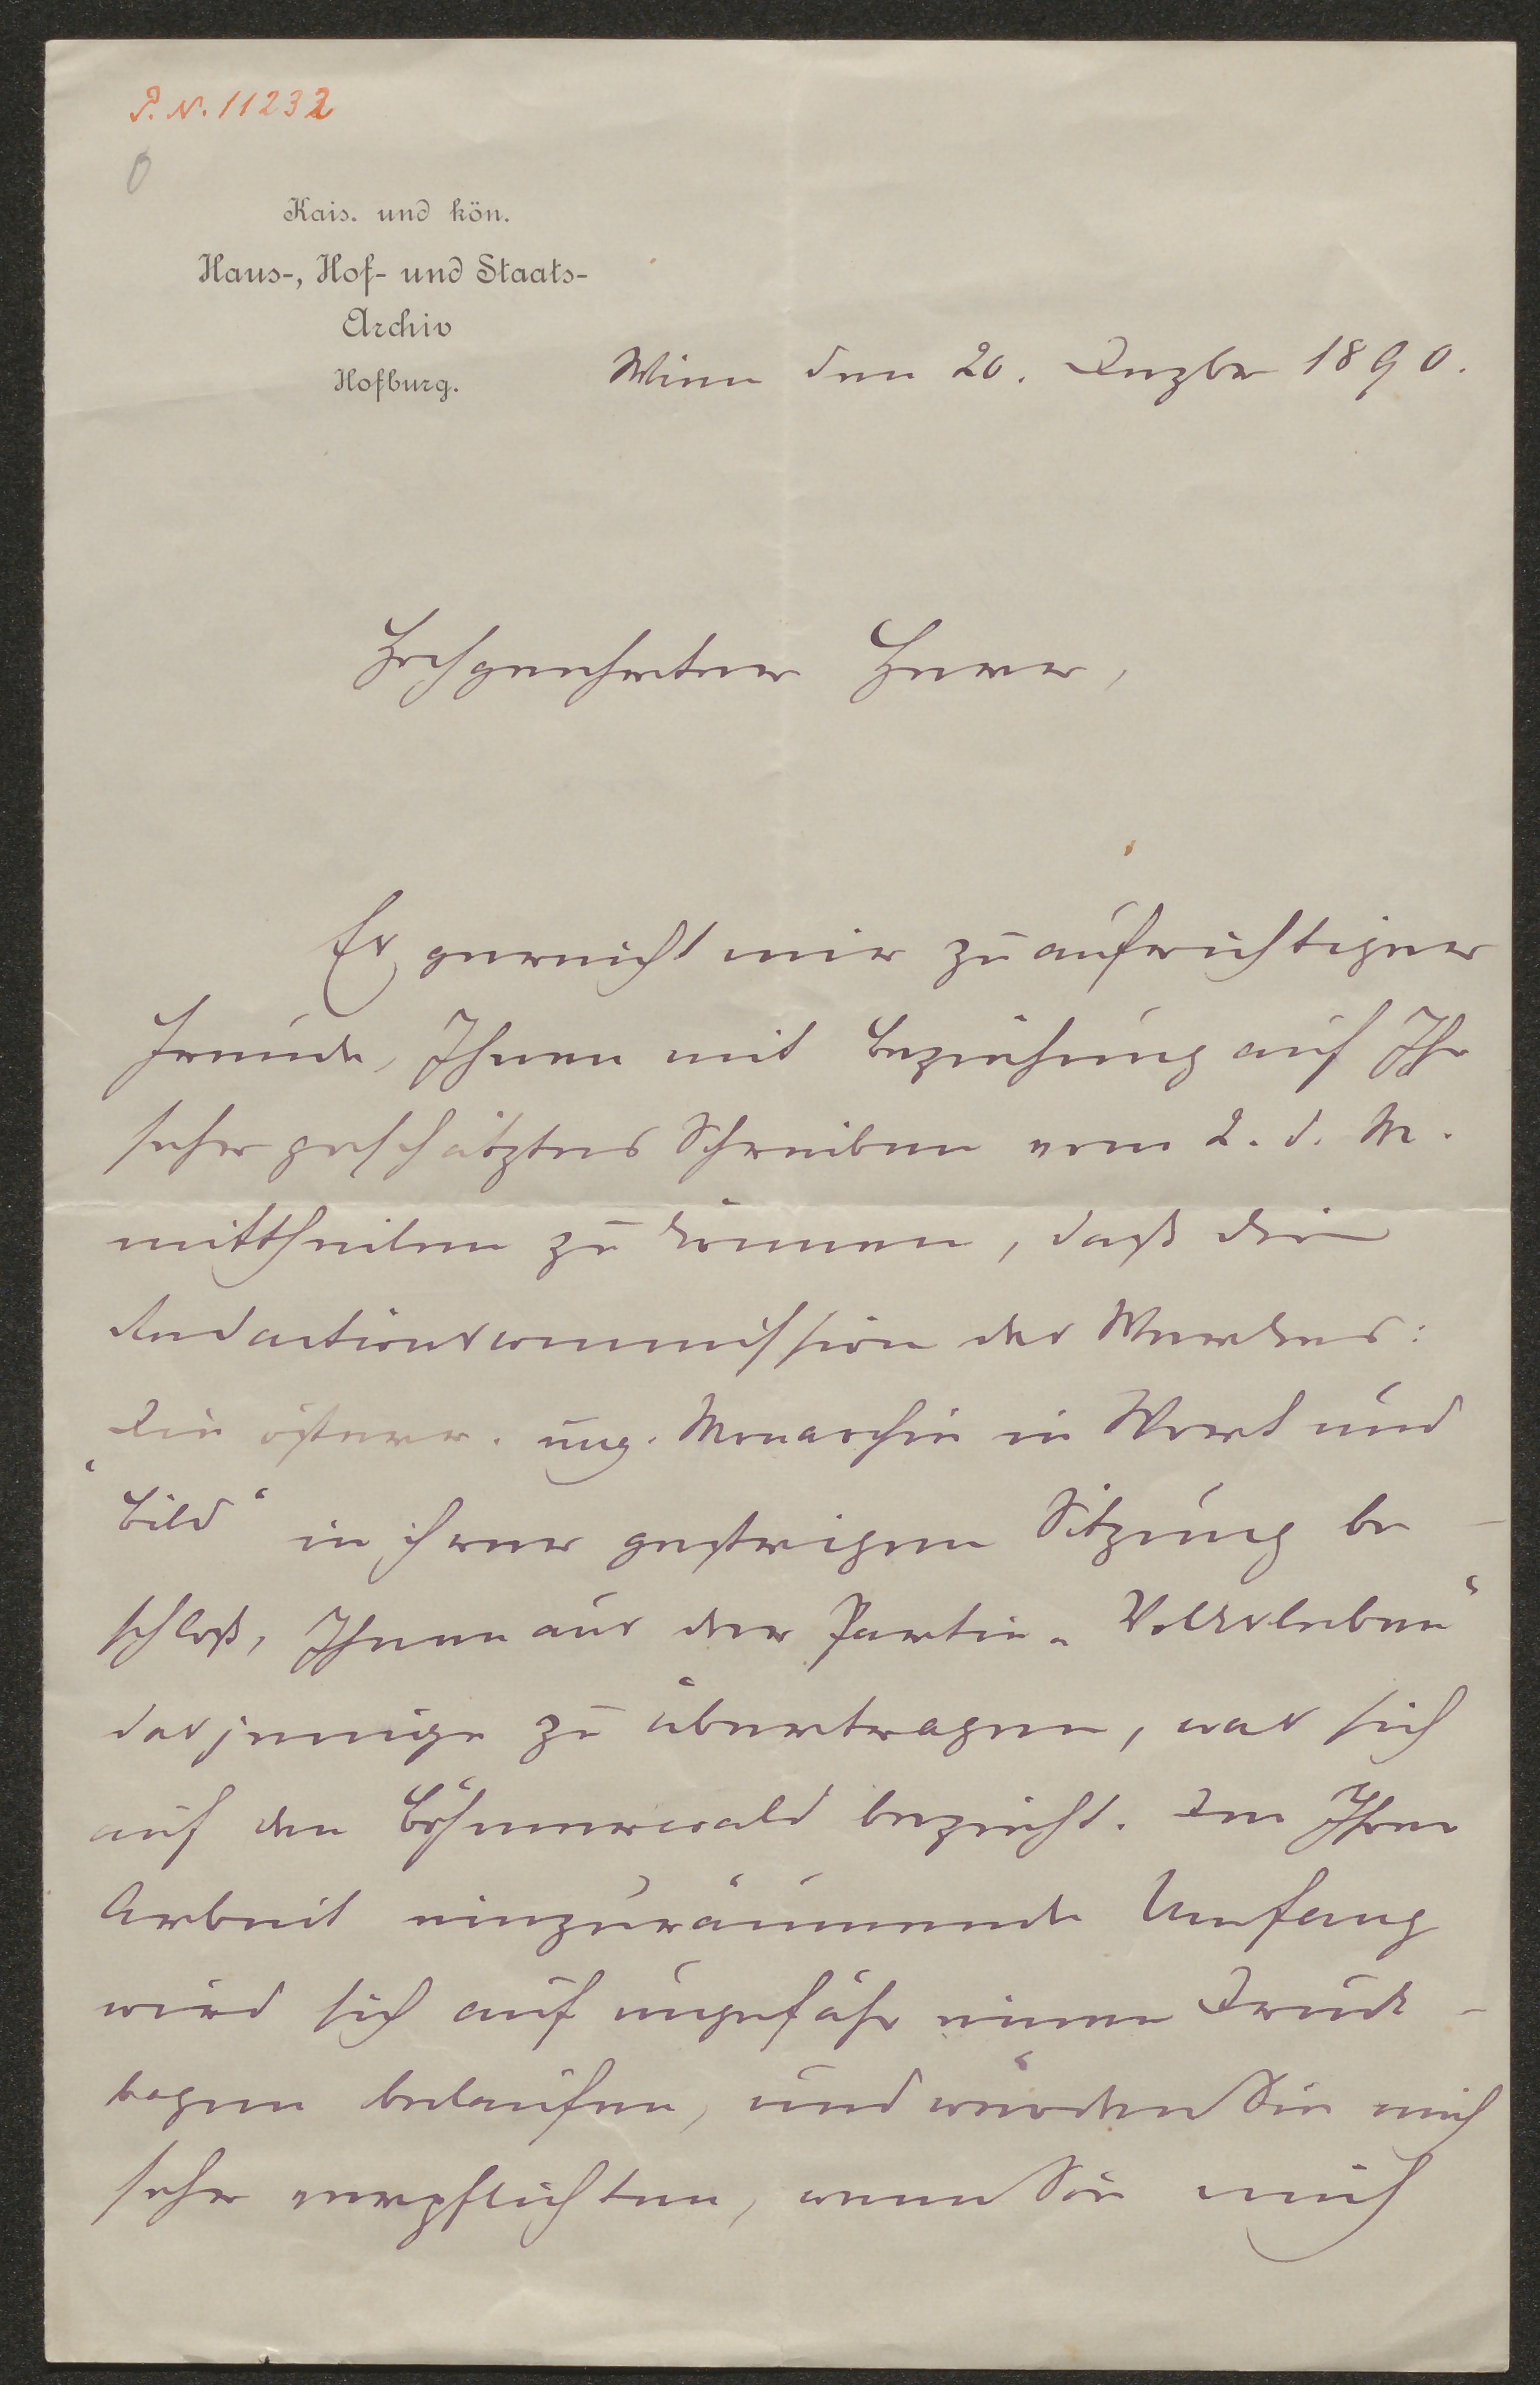 P. N. 11232
0
Kais. und kön.
Haus-, Hof- und Staats-
Archiv
Hofburg.
Wien den 20. Dezbr 1890.
Hochgeehrter Herr,
Es gereicht mir zu aufrichtiger
Freude, Ihnen mit Beziehung auf Ihr
sehr geschätztes Schreiben vom 2. d. M.
mittheilen zu können, daß die
Redactionscommission des Werkes:
Die österr. ung. Monarchie in Wort und
"Bild" in ihrer gestrigen Sitzung be-
schloß, Ihnen aus der Partie „Volksleben"
dasjenige zu übertragen, was sich
auf den Böhmerwald bezieht. Der Ihrer
Arbeit einzuräumende Umfang
wird sich auf ungefähr einen Druck-
bogen belaufen, und würden Sie mich
sehr verpflichten, wenn Sie mich